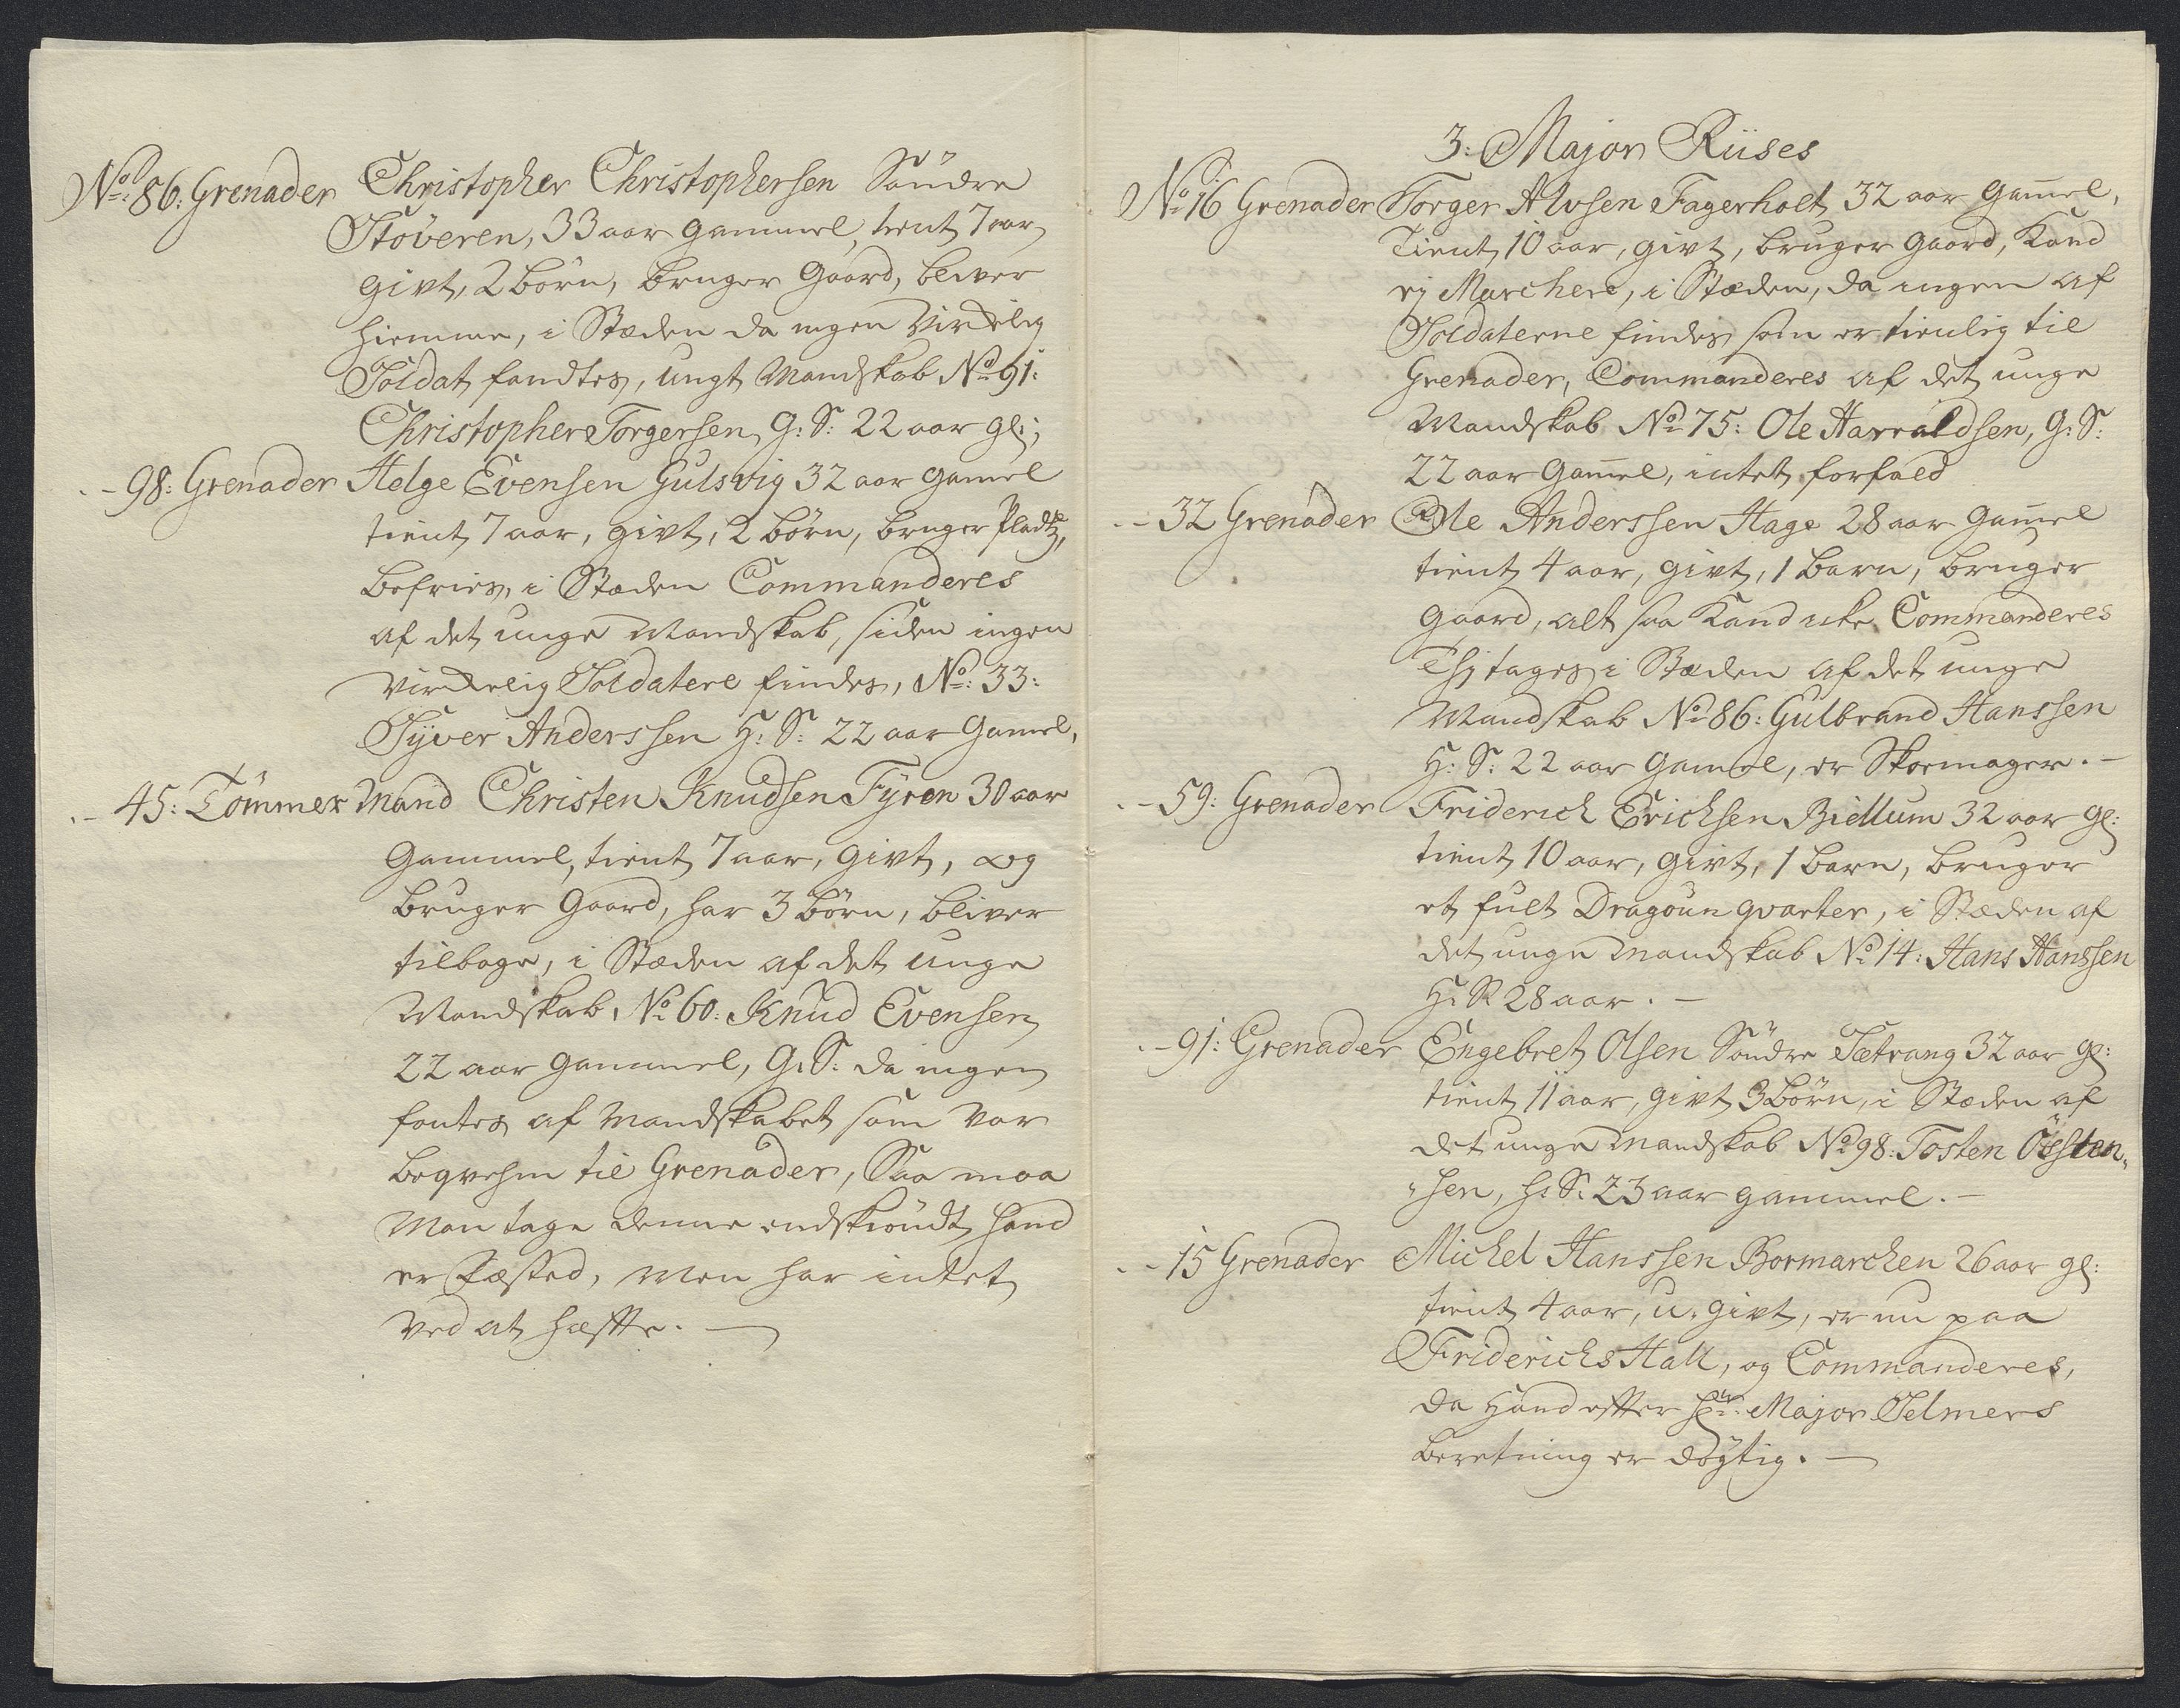 No: 86: Grenader Christopher Christophersen Söndre
Stöveren, 33 aar gammel, tient 7 aar
givt, 2 börn, bruger gaard, bliver
hiemme, i Stæden da ingen virkelig
Soldat fandtes, ungt Mandskab No 91:
Christopher Torgersen, G: S: 22 aar gl:;
.- 98: Grenader Helge Evensen Gulsvig 32 aar gamel
tient 7 aar, givt, 2 börn, bruger Pladtz,
befries, i Stæden Commanderes
af det unge Mandskab, siden ingen
virkelig Soldatere findes, No: 33:
Syver Anderssen H: S: 22 aar gamel,
.- 45: Tömmer mand Christen Knudsen Fyren 30 aar
gammel, tient 7 aar, givt, og
bruger gaard, har 3 börn, bliver
tilbage, i Stæden af det unge
Mandskab, No 60: Knud Evensen
22 aar gammel, G: S: da ingen
fantes af Mandskabet som var
beqvehm til Grenader, Saa maa
Man tage denne endskiöndt hand
er fæsted, men har intet
ved at hæffte. —
3: Major Riises
No 16 Grenader Torger Alvsen Fagerholt 32 aar gamel,
tient 10 aar, givt, bruger gaard, Kand
ej Marchere, i Stæden, da ingen af
Soldaterne findes som er tienlig til
Grenader, Commanderes af det unge
Mandskab No 75: Ole Harraldsen, G: S:
22 aar gamel, intet forfald
.- 32 Grenader Ole Anderssen Hage 28 aar gamel
tient 4 aar, givt, 1 barn, bruger
gaard, alt saa Kand icke Commanderes
tages i Stæden af det unge
Mandskab No 86: Gulbrand Hanssen
H: S: 22 aar gamel, er Skoemager. -
.- 59: Grenader Friderich Erichsen Biellum 32 aar gl:
tient 10 aar, givt, 1 barn, bruger
et fult Dragoun qvarter, i Stæden af
det unge Mandskab No 14: Hans Hanssen
H: S: 28 aar. —
.- 91: Grenader Engebret Olsen Söndre Tætrang 32 aar gl:
tient 11 aar, givt 3 börn, i Stæden af
det unge Mandskab No 98: Tosten Össten-
sen, H: S: 23 aar gammel. -
.- 15 Grenader Michel Hanssen Bormarchen 26 aar gl:
tient 4 aar, u-givt, er nu paa
Friderichs Hall, og Commanderes,
da hand effter Hr: Major Selmers
beretning er döytig. —